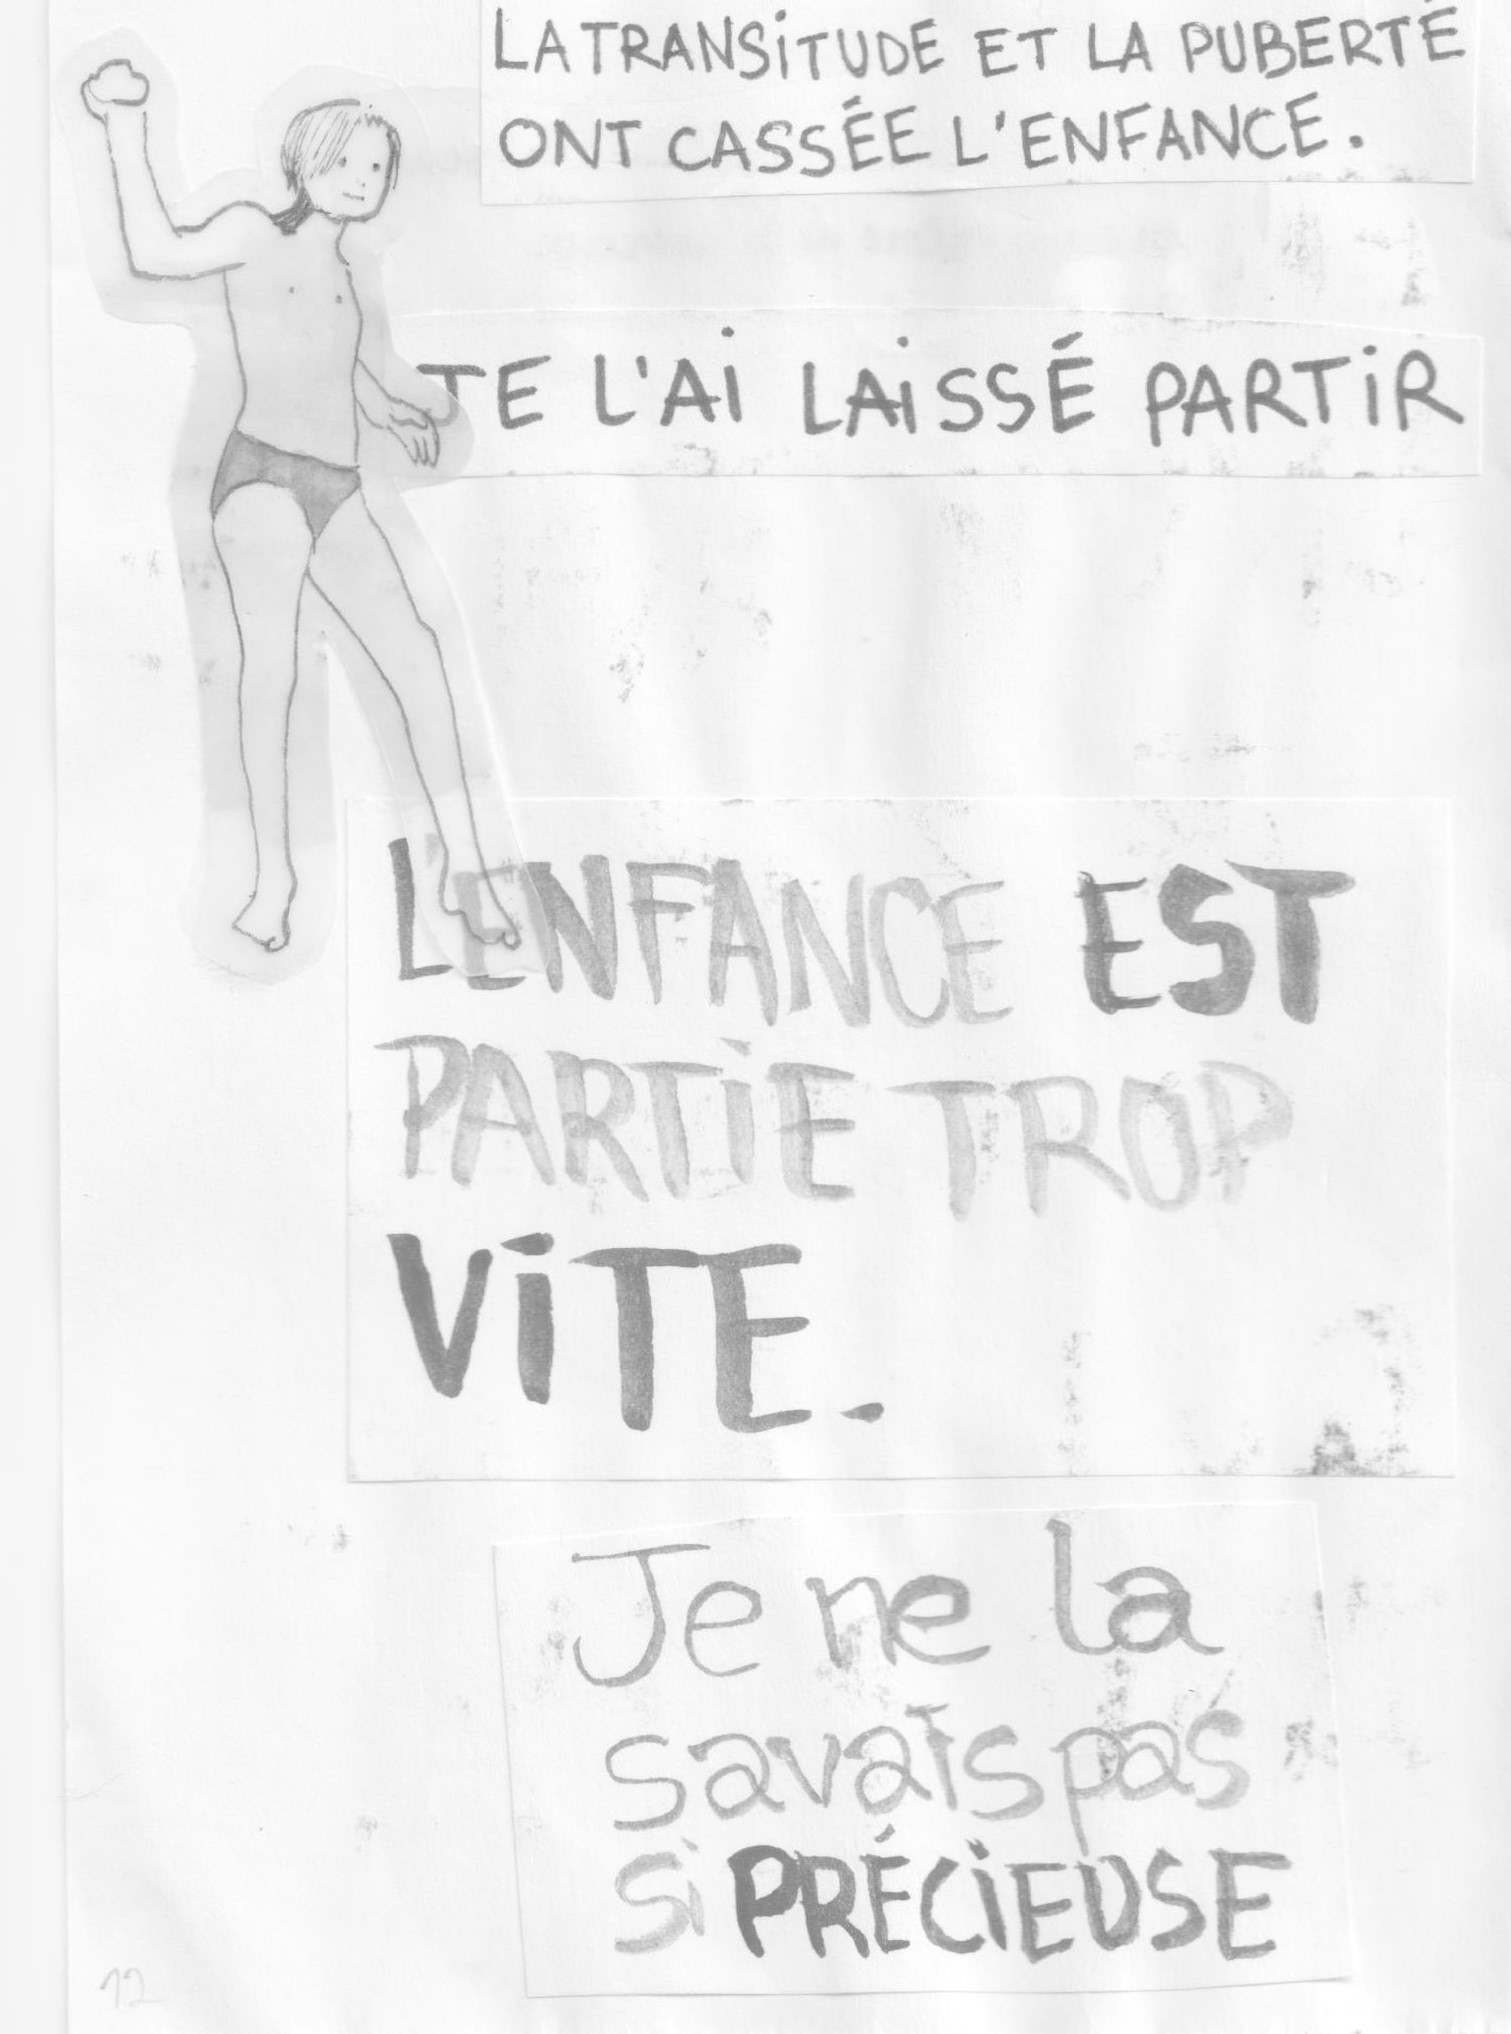 LA TRANSiTUDE ET LA PUBERTÉ
ONT CASSÉE L'ENFANCE.
JE L'Ai LAiSSÉ PARTiR
L'ENFANCE EST
PARTiE TROP
ViTE.
Je ne la
savais pas
si PRÉCiEUSE
12